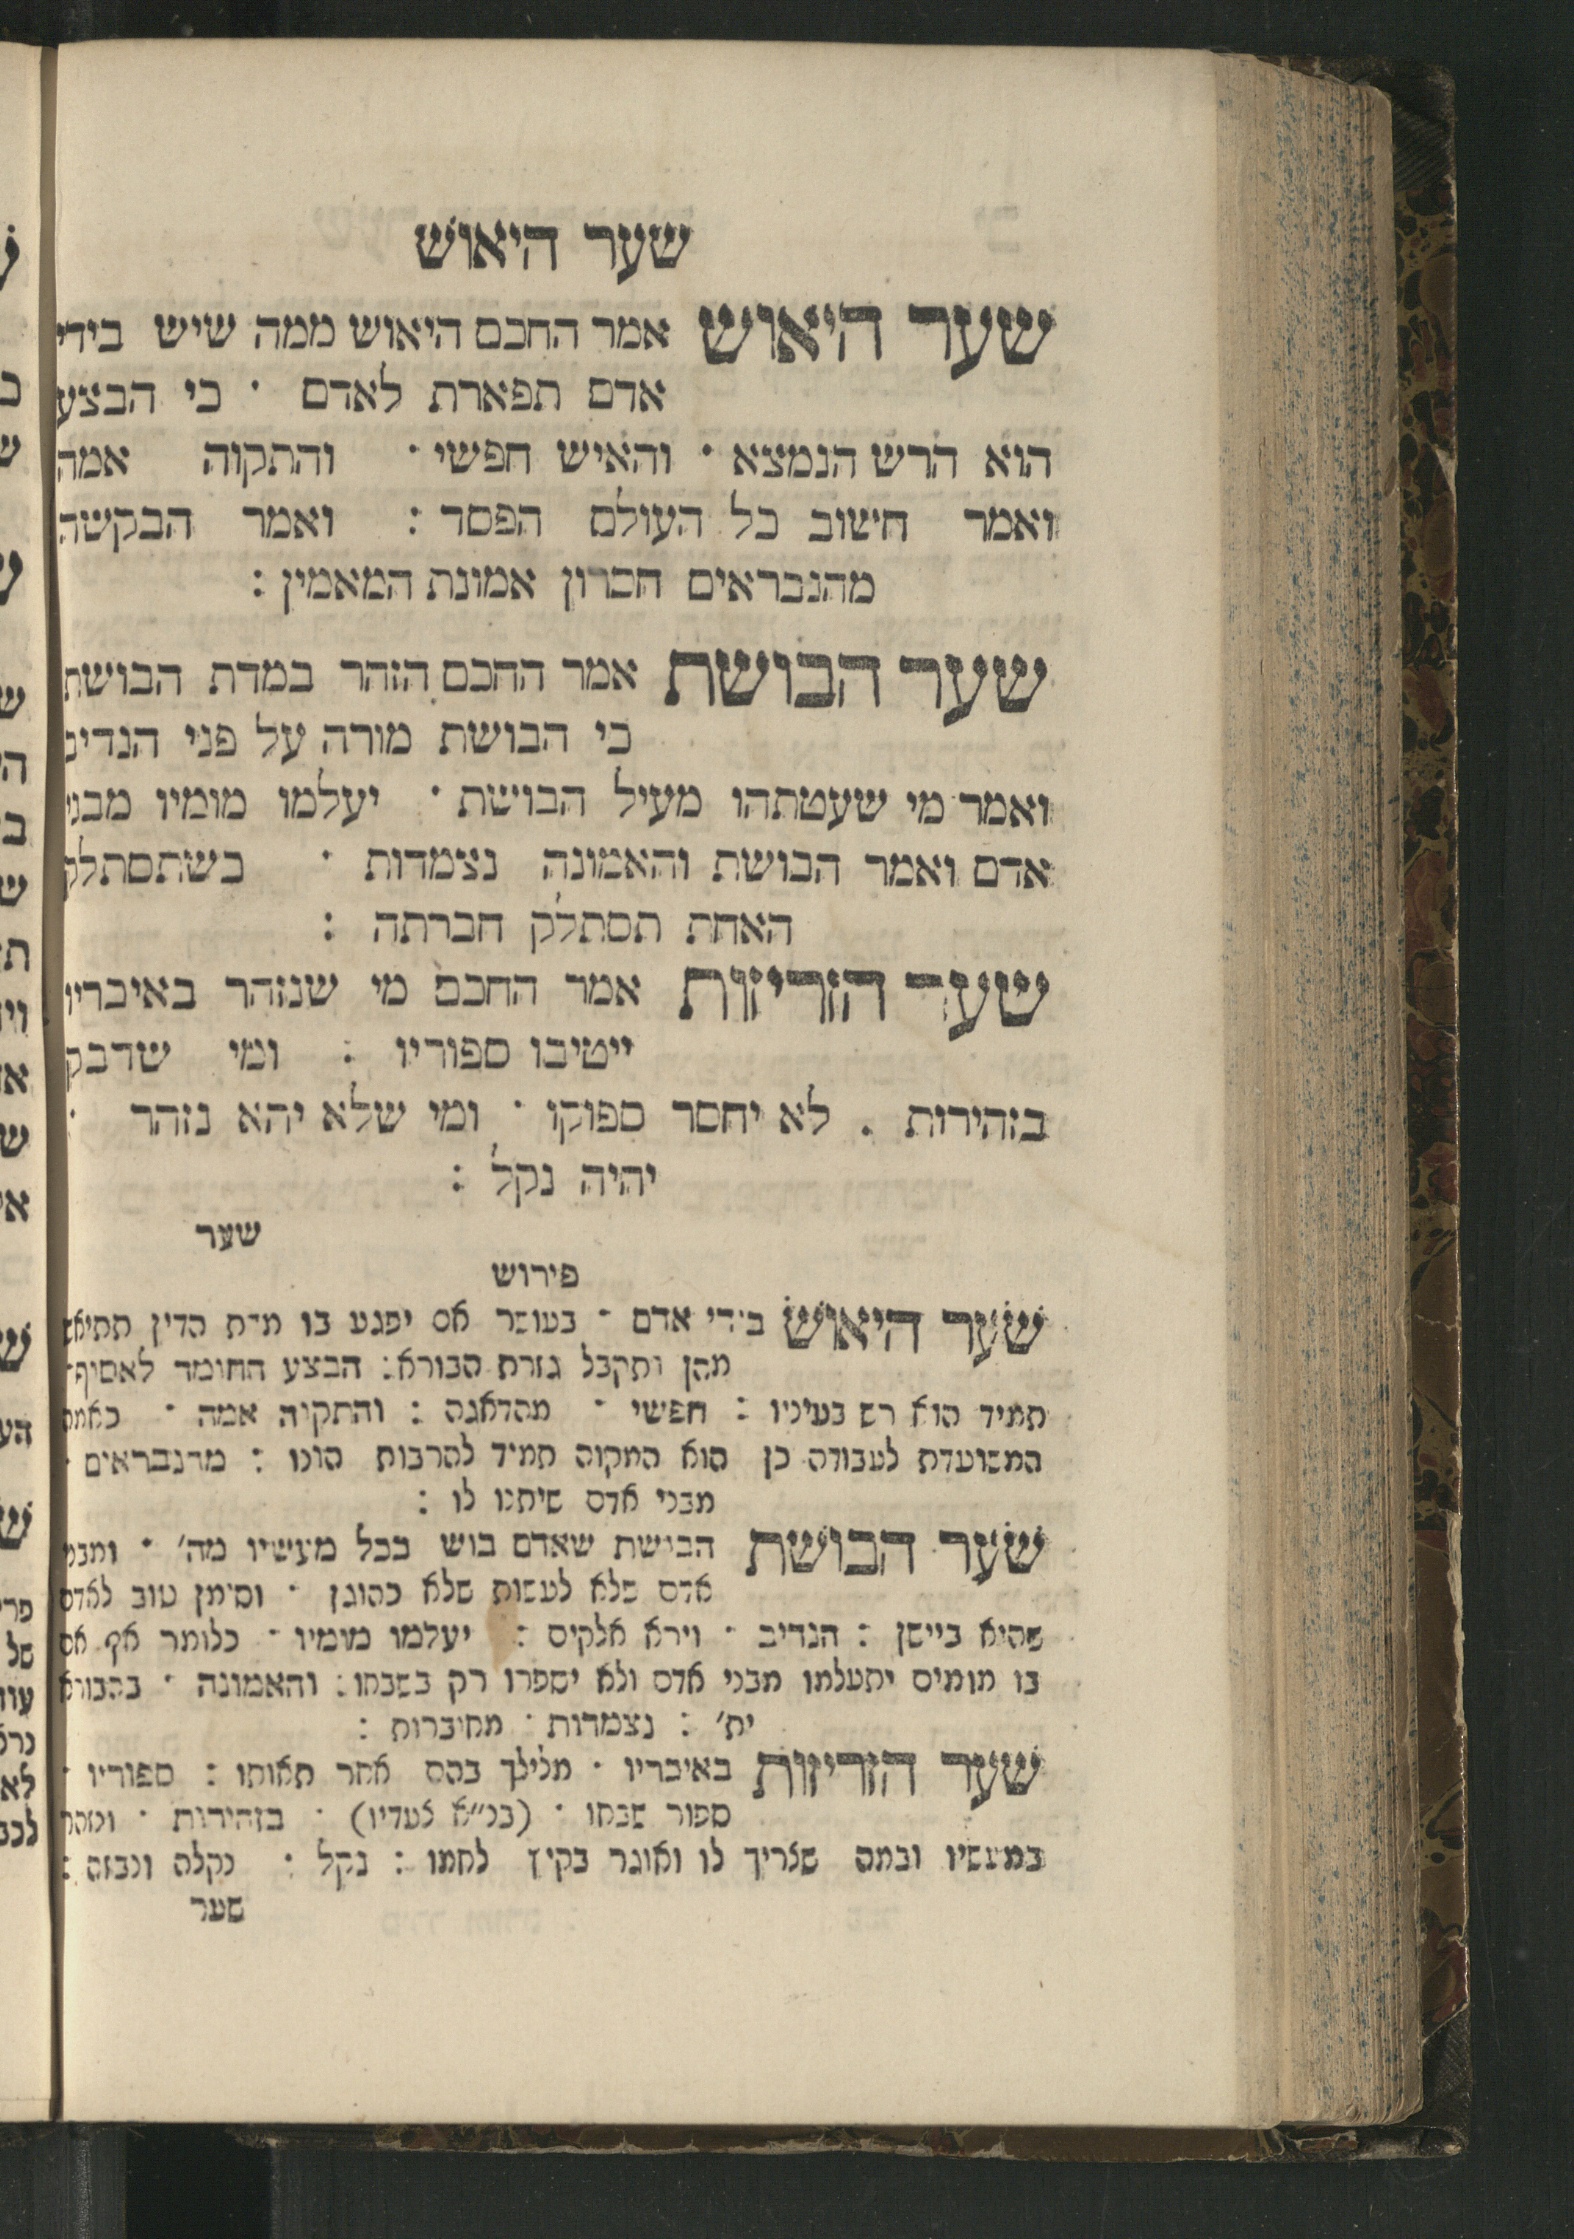 שער היאוש
שער היאוש אמר החכם היאוש ממה שיש בידי
אדם תפארת לאדם · כי הבצע
הוא הרש הנמצא · והאיש חפשי · והתקוה אמה
ואמר חישוב כל העולם הפסד : ואמר הבקשה
מהנבראים חסרון אמונת המאמין :
שער הבושת אמר החכם הזהר במדת הבושת
כי הבושת מורה על פני הנדיב
ואמר מי שעטתהו מעיל הבושת · יעלמו מומיו מבני
אדם ואמר הבושת והאמונה נצמדות · כשתסתלק
האחת תסתלק חברתה :
שער הזריזות אמר החכם מי שנזהר באיבריו
ייטיבו ספוריו : ומי שדבק
בזהירות . לא יחסר ספוקו · ומי שלא יהא נזהר :
יהיה נקל :
שער
פירוש
שער היאוש בידי אדם · בעושר אם יפגע בו מדת הדין תתיאש
מהן ותקבל גזרת הבורא : הבצע החומד לאסוף·
תמיד הוא רש בעיניו : חפשי · מהדאגה : והתקוה אמה · כאמה
המשועדת לעבודה כן הוא המקוה תמיד להרבות הונו : מהנבראים ·
מבני אדם שיתנו לו :
שער הבושת הבישת שאדם בוש בכל מעשיו מה׳ · ומבני
אדם שלא לעשות שלא כהוגן · וסימן טוב לאדם
שהיא ביישן : הנדיב · וירא אלקים : יעלמו מומיו · כלומר אף אם
בו מומים יתעלמו מבני אדם ולא יספרו רק בשבחו : והאמונה · בהבורא
ית׳ : נצמדות · מחיברות :
שער הזריזות באיבריו · מלילך בהם אחר תאותו : ספוריו ·
ספור שבחו · (בנ״א צעדיו) · בזהירות ·
במעשיו ובמה שצריך לו ואוגר בקיץ לחמו : נקל : נקלה ונבזה :
שער